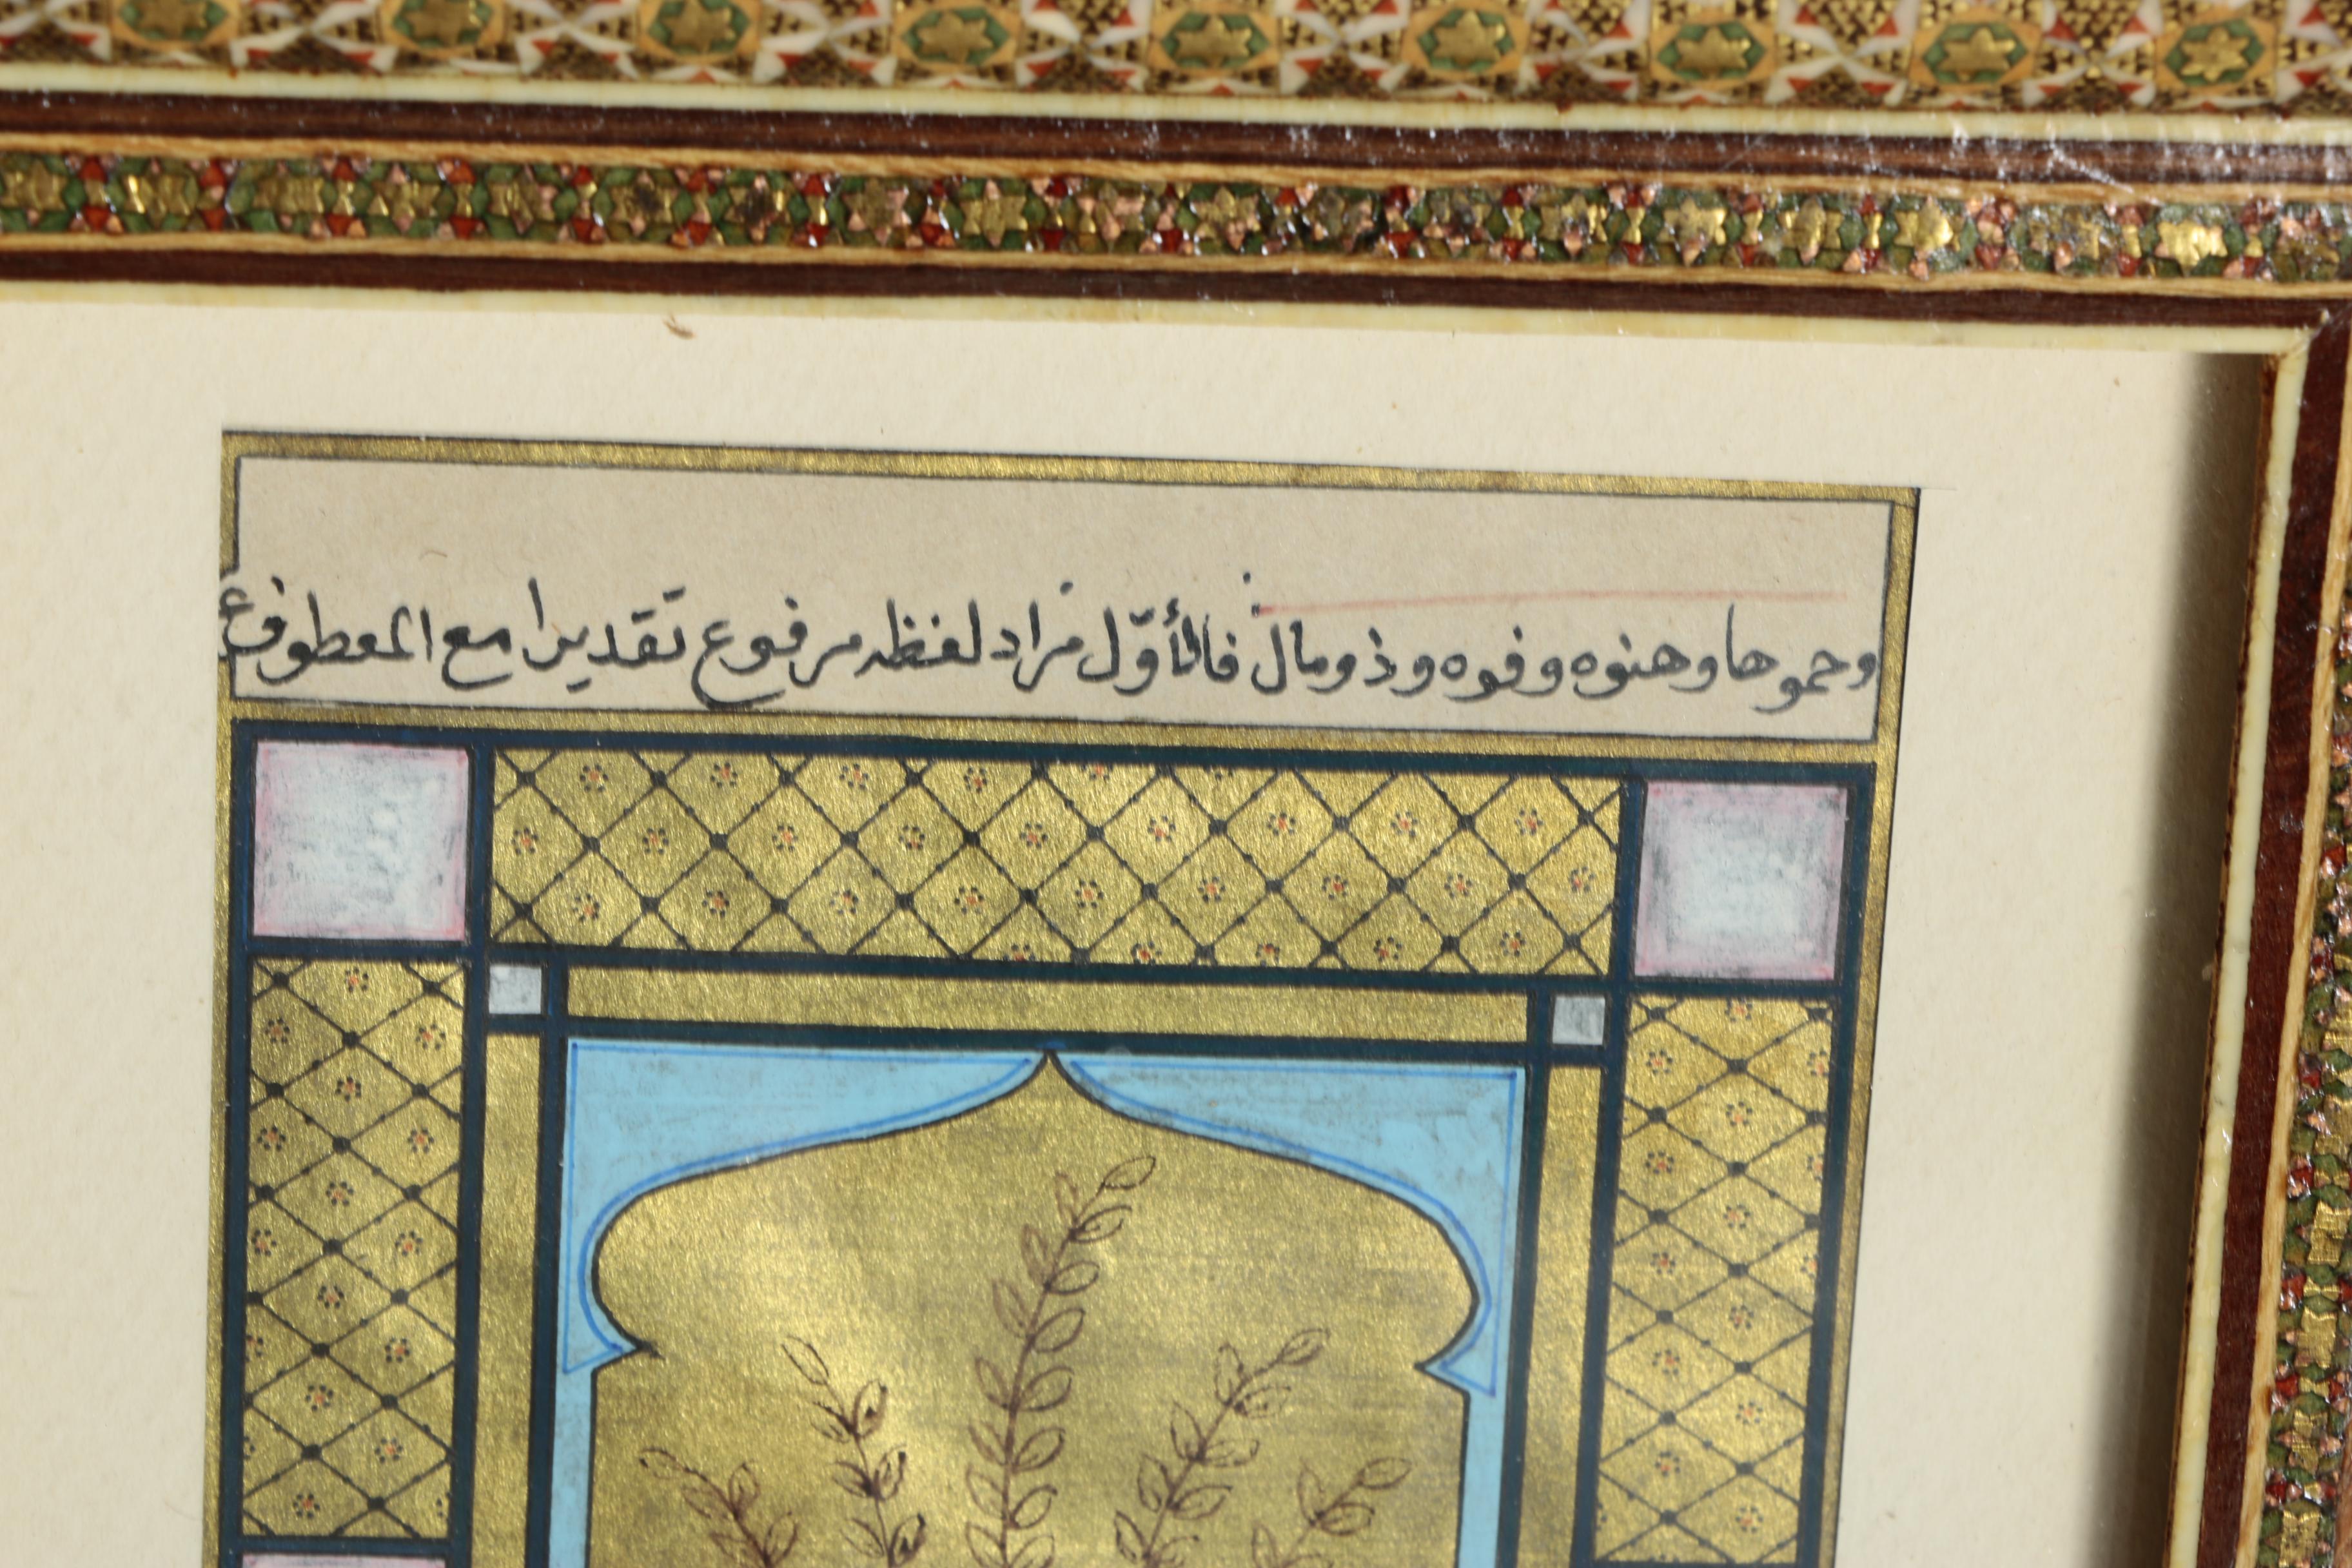 وحموها وهنوه وفوه وذو مال فالأوّل مراد لفظه مرفوع تقديرا مع المعطوف